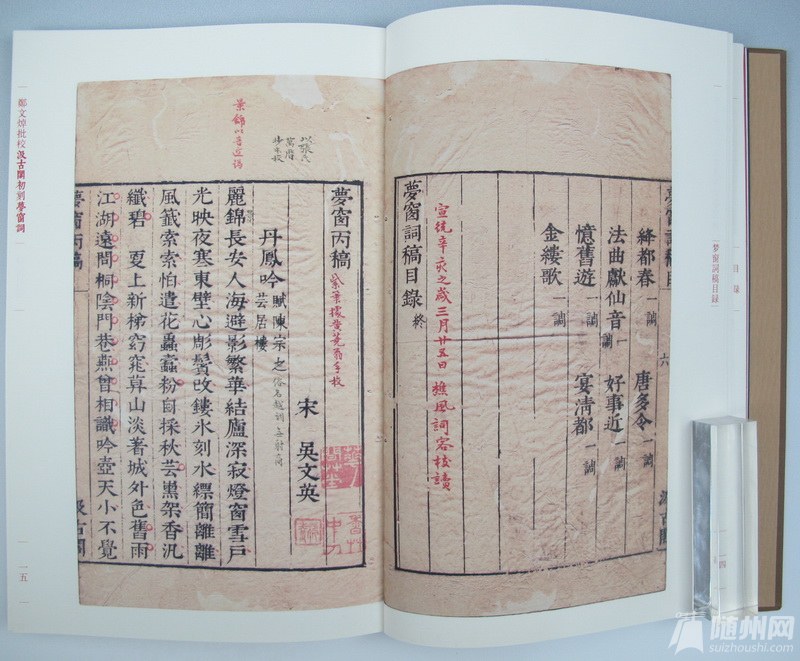 目錄
夢窗詞稿目錄
一四
絳都春 一調 唐多令 一調
法曲獻仙音 一調 好事近 一調
憶舊遊 一調 宴清都 一調
金縷歌 一調
宣統辛亥之歲三月廿五日 樵風詞客校讀
夢窗詞稿目錄 終
夢窗丙稿
宋 吳文英
丹鳳吟 賦陳宗之芸居樓
麗錦長安人海避影繁華結廬深寂燈窗雪戶
光映夜寒東壁心彫鬢改鏤氷刻水縹簡離離
風籤索索怕遺花蟲蠹粉自採秋芸熏架香汎
纖碧 更上新梯窈窕算山淡著城外色舊雨
江湖遠問桐陰門巷燕曾相識吟壺天小不覺
夢窗丙稿 汲古閣
鄭文焯批校汲古閣初刻夢窗詞
一五
随州网
suizhoushi.com